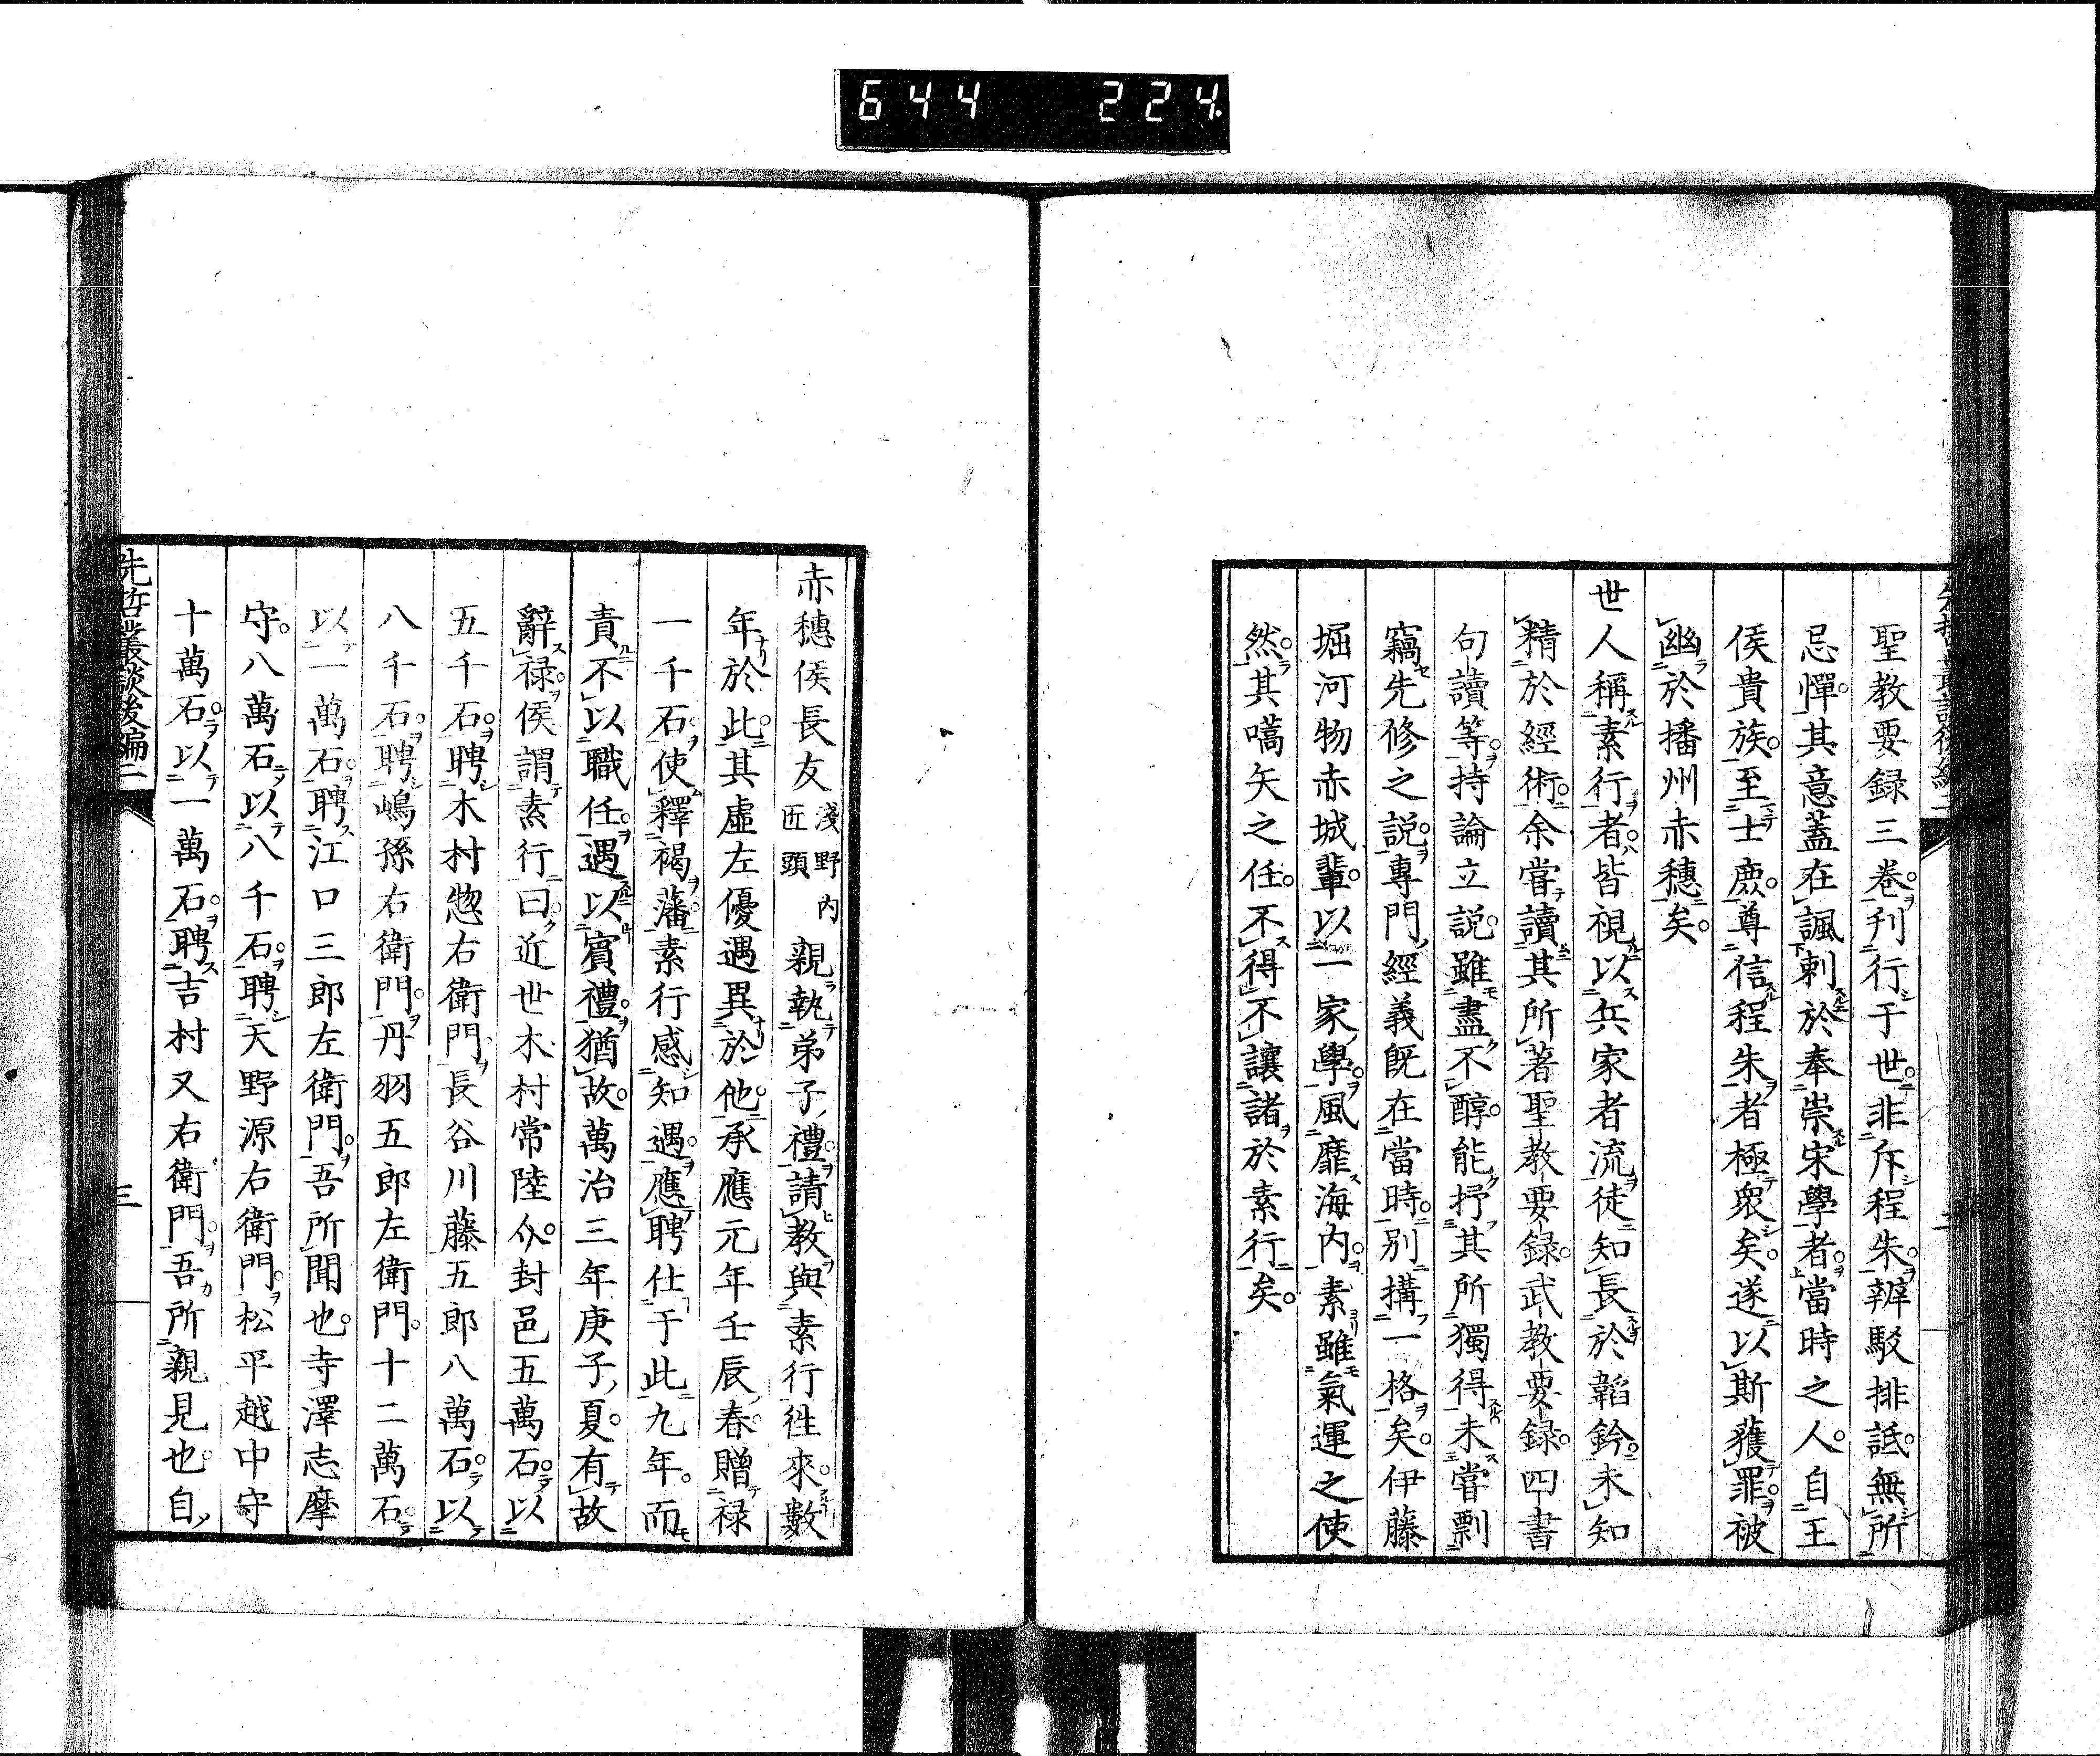 644 224.
先哲叢談後編二
聖教要録三卷刊行于世非斥程朱辨駁排詆無所
忌憚其意蓋在諷刺於奉崇宋學者當時之人自王
侯貴族至士庶尊信程朱者極衆矣遂以斯獲罪被
幽於播州赤穗矣
世人稱素行者皆視以兵家者流徒知長於韜鈐未知
精於經術余嘗讀其所著聖教要録武教要録四書
句讀等持論立説雖盡不醇能抒其所獨得未嘗剽
竊先修之説專門經義既在當時別搆一格矣伊藤
堀河物赤城輩以一家學風靡海内素雖氣運之使
然其嚆矢之任不得不讓諸於素行矣
二
赤穗侯長友淺野内匠頭親執弟子禮請教與素行徃來數
年於此其虛左優遇異於他承應元年壬辰春贈禄
一千石使釋褐藩素行感知遇應聘仕于此九年而
責不以職任遇以賓禮猶故萬治三年庚子夏有故
辭禄侯謂素行曰近世木村常陸介封邑五萬石以
五千石聘木村惣右衛門長谷川藤五郎八萬石以
八千石聘嶋孫右衛門丹羽五郎左衛門十二萬石
以一萬石聘江口三郎左衛門吾所聞也寺澤志摩
守八萬石以八千石聘天野源右衛門松平越中守
十萬石以一萬石聘吉村又右衛門吾所親見也自
先哲叢談後編二
三